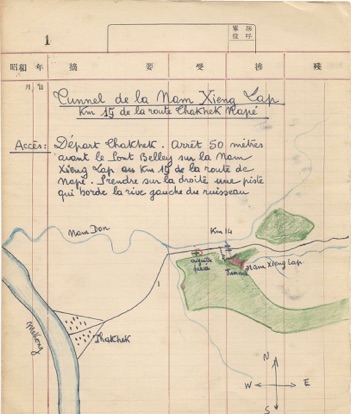 1
昭和 年 摘 要 受 拂 殘
月 日
Tunnel de la Nam Xieng Lap
Km 15 de la route Thakhek Napé
Accès: Départ Thakhek. Arrêt 50 mètres
avant le Pont Belley sur la Nam
Xieng Lap au Km 15 de la route de
Napé. Prendre sur la droite une piste
qui borde la rive gauche du ruisseau
Nam Don
Km 14
Nam Xieng Lap
Tunnel
Thakhek
Mekong
N
W E
S